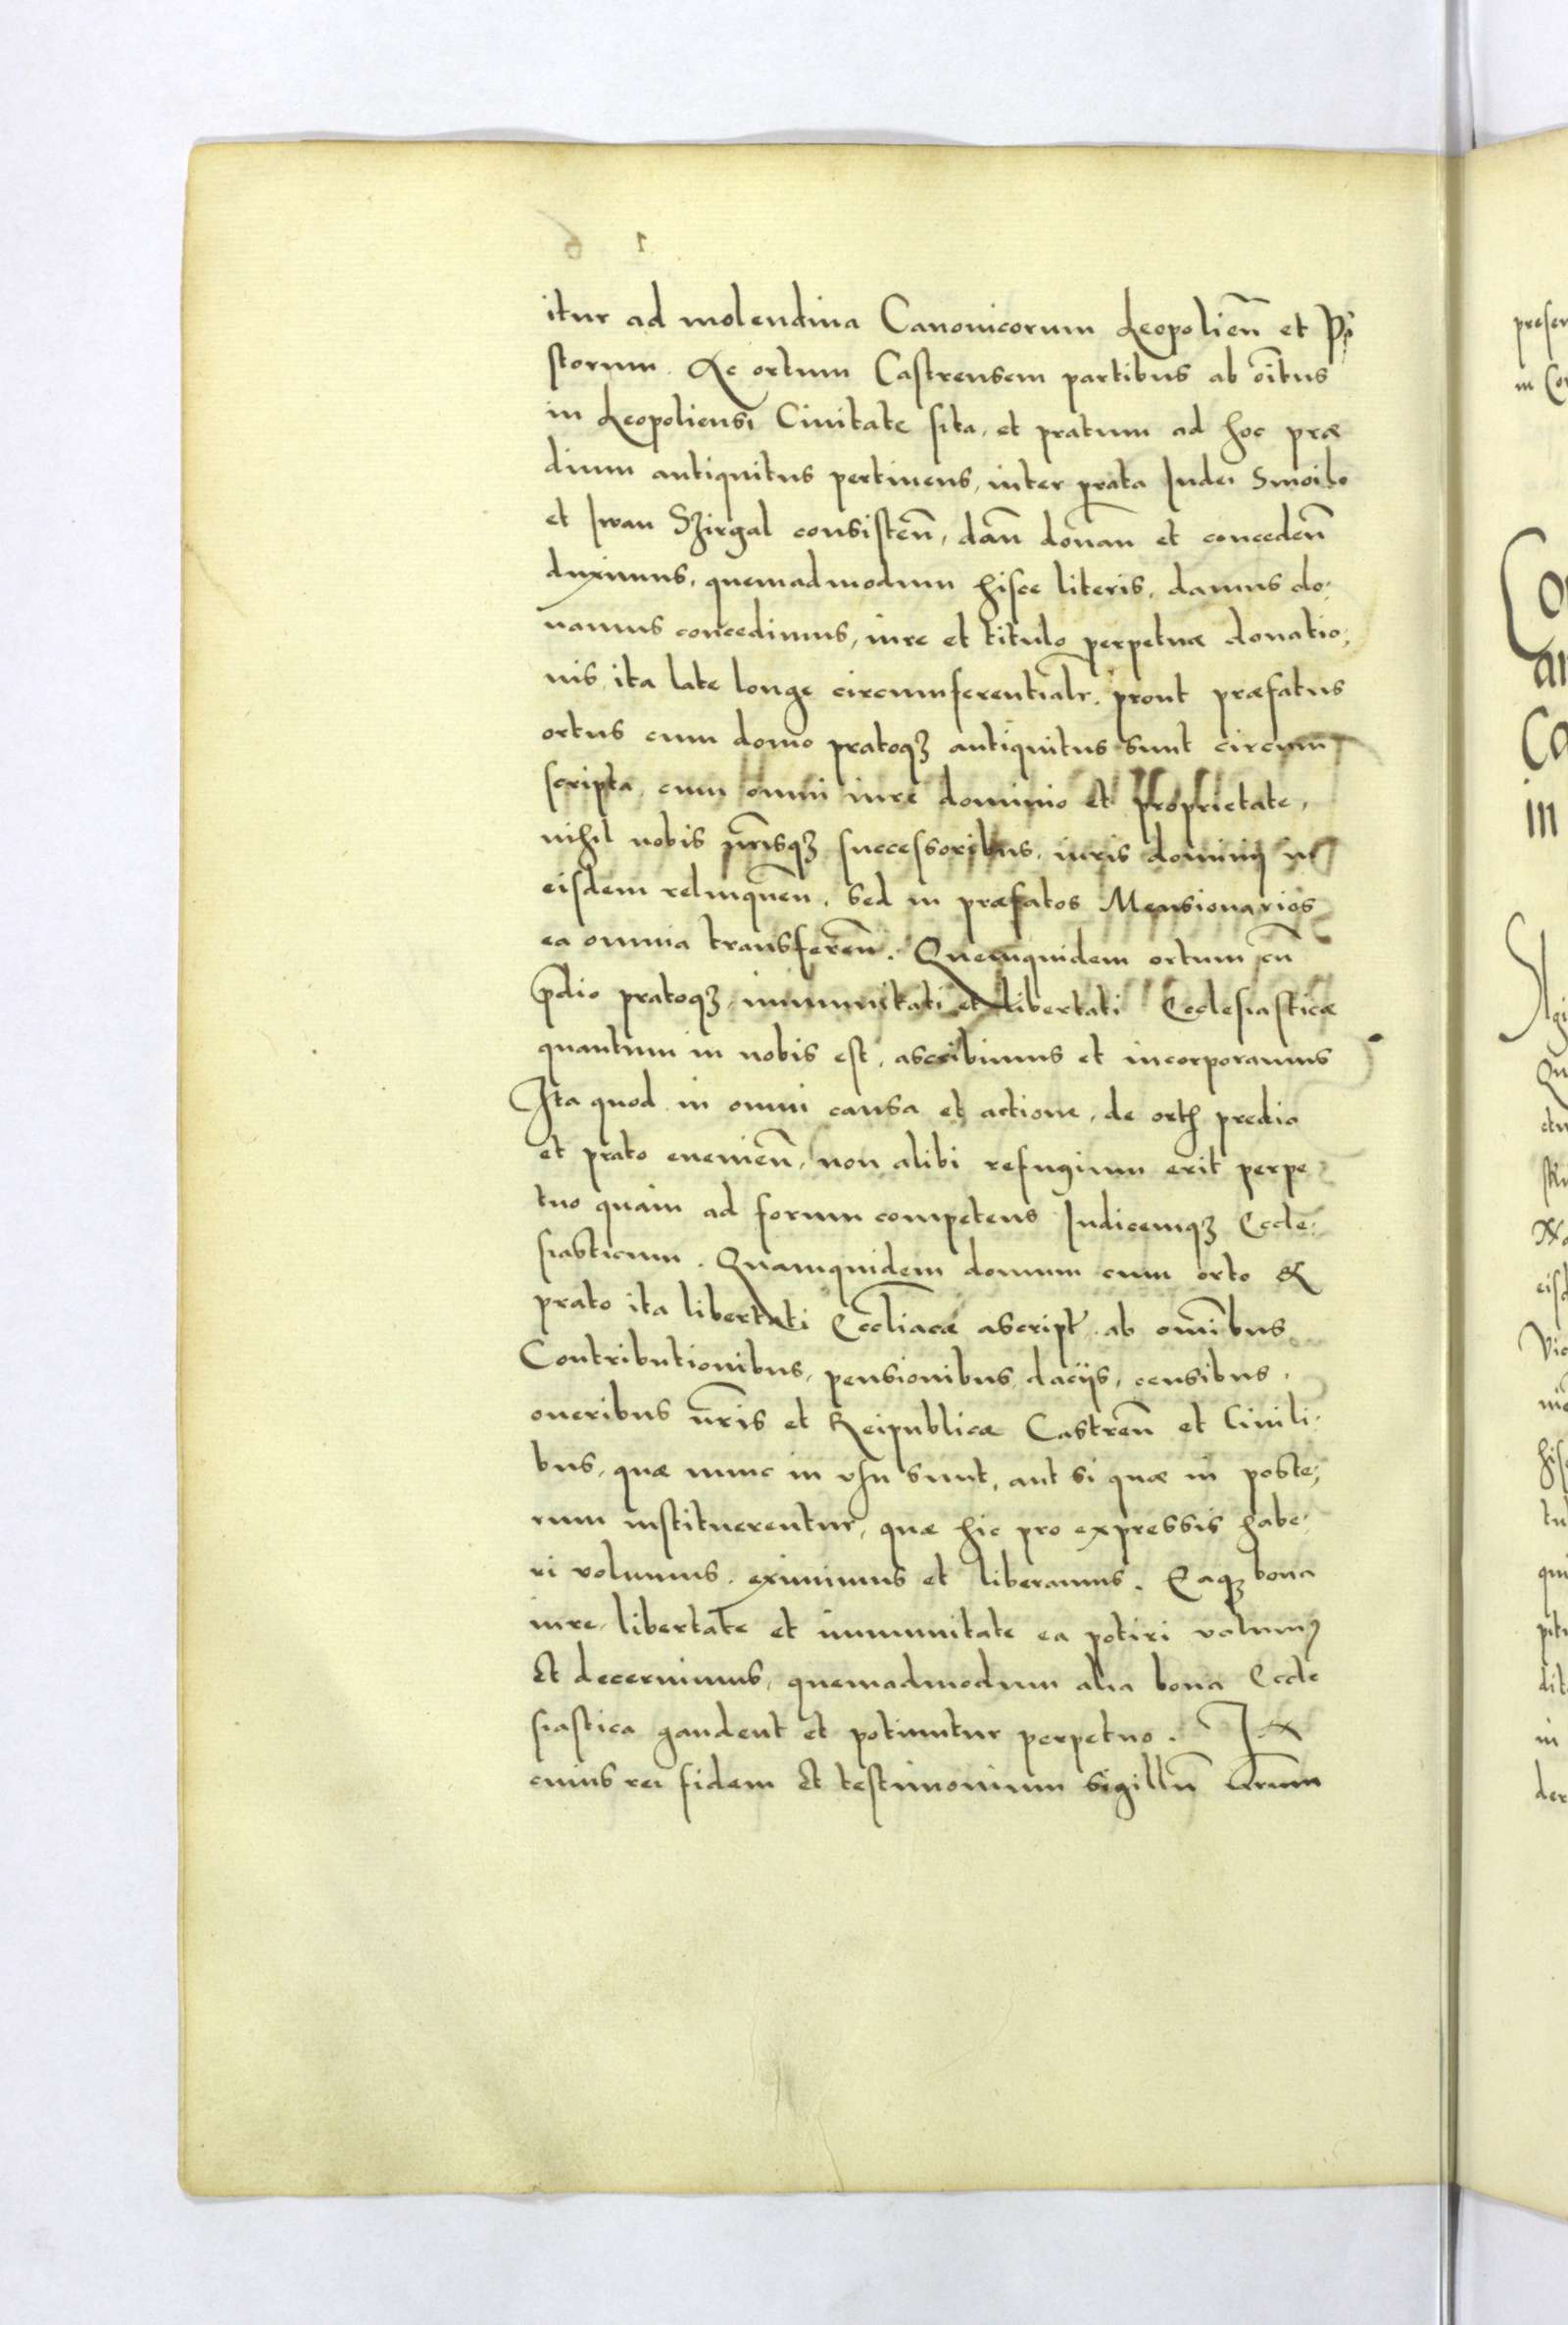 itur ad molendina Canonicorum Leopolien̄ et Pi
storum. Ac ortum Castrensem partibus ab oībus
in Leopoliensi Ciuitate sita, et pratum ad hoc præ
dium antiquitus pertinens, inter prata Iudei Smoilo
et Iwan Szirgal consisten̄, dan̄ donan̄ et conceden̄
duximus, quemadmodum hisce literis, damus do,
namus concedimus, iure et titulo perpetuæ donatio,
nis, ita late longe circumferentialr̄. prout præfatus
ortus cum domo pratoqꝫ antiquitus sunt circum
scripta, cum omni iure dominio et proprietate,
nihil nobis nrīsqꝫ successoribus, iuris dominij in
eisdem relinquen̄, sed in præfatos Mansionarios
ea omnia transferen̄. Quemquidem ortum cū
p̄dio pratoqꝫ, immunitati et libertati Ecclesiasticæ
quantum in nobis est, ascribimus et incorporamus
Ita quod in omni causa et actione, de orto predio
et prato euenien̄, non alibi refugium erit perpe
tuo quam ad forum competens Iudicemqꝫ Eccle,
siasticum. Quamquidem domum cum orto &
prato ita libertati Eccl̄iacæ ascript. ab omībus
Contributionibus, pensionibus, dacijs, censibus,
oneribus nr̄is et Reipublicæ Castren̄ et Ciuili,
bus, quæ nunc in vsu sunt, aut si quæ in poste,
rum instituerentur, quæ hic pro expressis habe,
ri volumus, eximimus et liberamus. Eaqꝫ bona
iure, libertate et immunitate ea potiri volumus
et decernimus, quemadmodum alia bona Eccle
siastica gaudent et potiuntur perpetuo. In
cuius rei fidem et testimonium sigillū nr̄um